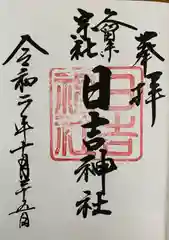 奉拝
日吉神社
日吉神社
令和二年十月二十五日